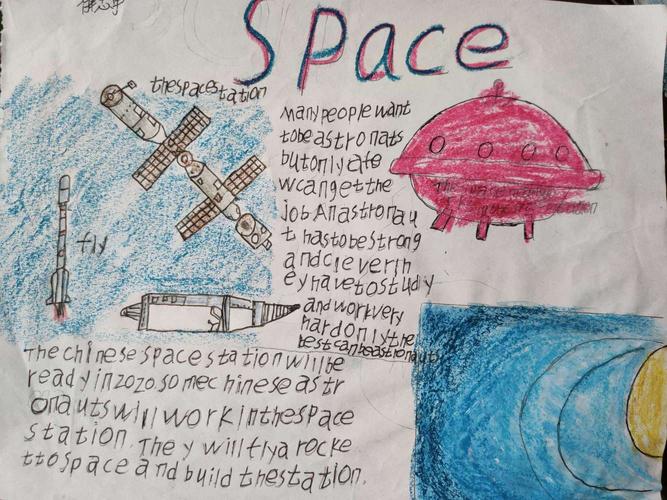 Space
thespacestation
fly
manypeople want
tobeastronats
butonlyafe
wcangetthe
job Anastronau
t hastobestrong
andcleverth
eyhavetostudy
andworkvery
hardonlythe
bestcanbeastronauts
Thechinesespacestationwillbe
readyin2020.somechineseastr
onautswillworkinthespace
station. They willflyarocke
ttospace andbuild thestation.